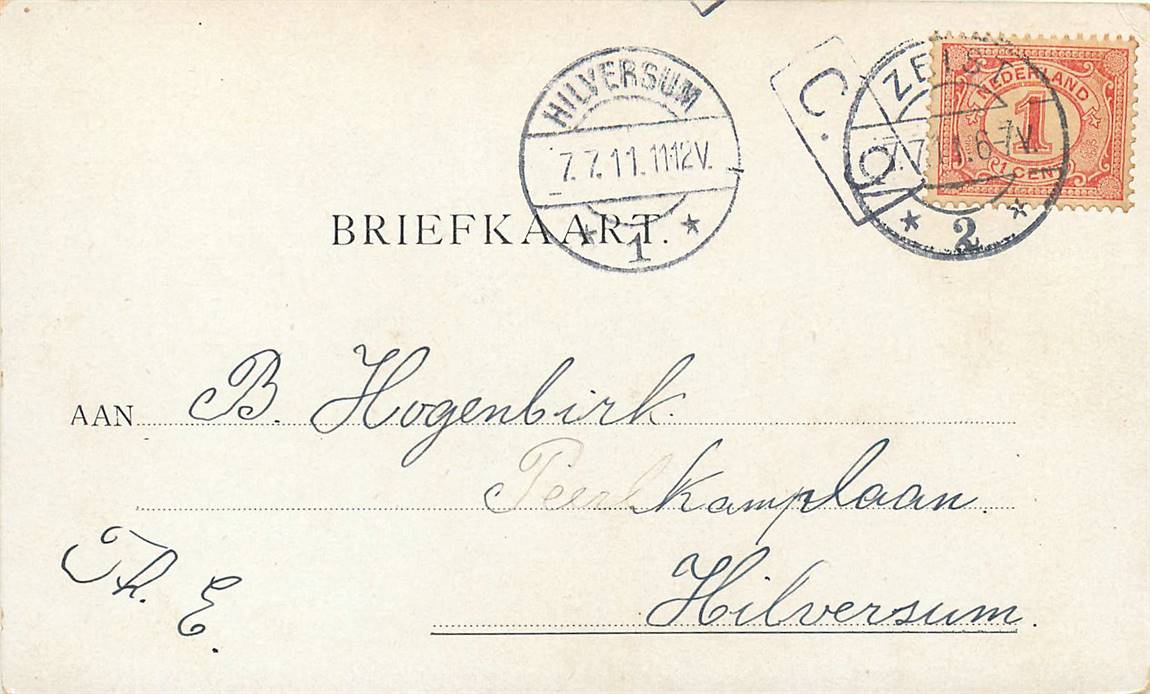 HILVERSUM
7.7.11.11-12V.
1
C. O
ZEIST
7.7.11.6-7V.
2
NEDERLAND
1
CENT
BRIEFKAART.
AAN B. Hogenbirk.
Peerlkamplaan.
Hilversum.
Th. E.